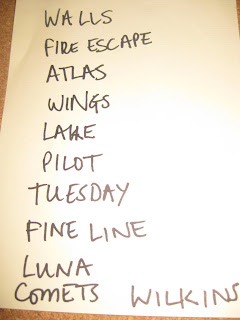 WALLS
FIRE ESCAPE
ATLAS
WINGS
LAKE
PILOT
TUESDAY
FINE LINE
LUNA
COMETS WILKINS